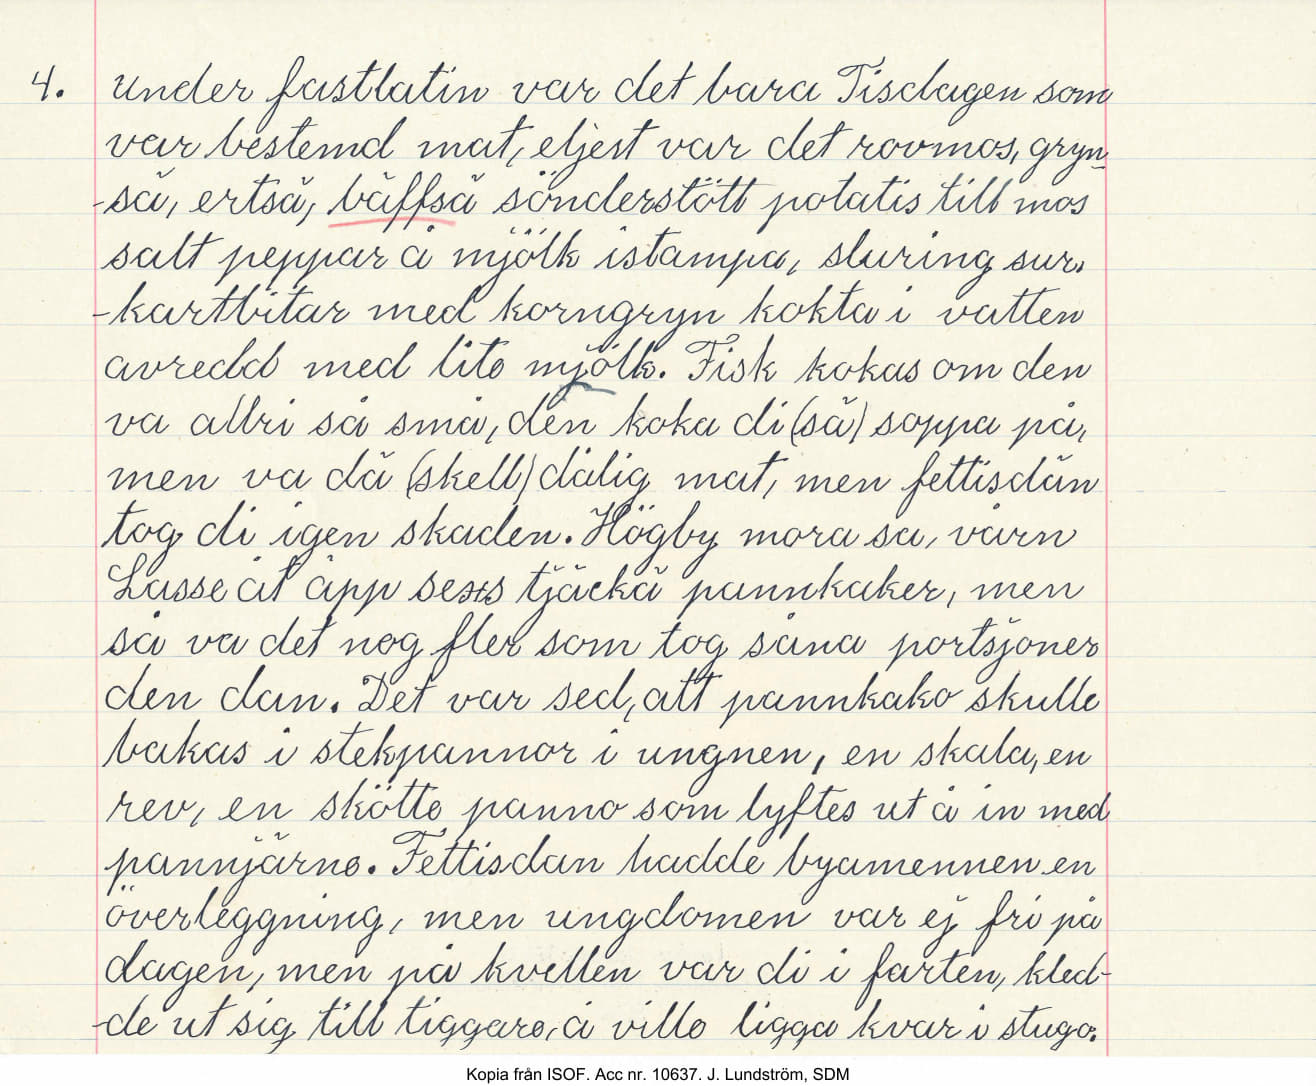 4. under fastlatin var det bara Tisdagen som
var bestemd mat, eljest var det rovmos, gryn-
-sä, ertsä, bäffsä sönderstött potatis till mos
salt peppar å mjölk istampa, sluring sur.
-kartbitar med korngryn kokta i vatten
avredd med lite mjölk. Fisk kokas om den
va allri så små, den koka di (sä) soppa på,
men va dä (skell) dålig mat, men fettisdän
tog di igen skaden. Högby mora sa, vårn
Lasse åt äpp sexs tjäckä pannkaker, men
så va det nog fler som tog såna portsjoner
den dan. Det var sed, att pannkako skulle
bakas i stekpannor i ungnen, en skala, en
rev, en skötte panno som lyftes ut å in med
pannjärne. Fettisdan hadde byamennen en
överleggning, men ungdomen var ej fri på
dagen, men på kvellen var di i farten, kled-
-de ut sig till tiggare, å ville ligga kvar i stugo.
Kopia från ISOF. Acc nr. 10637. J. Lundström, SDM